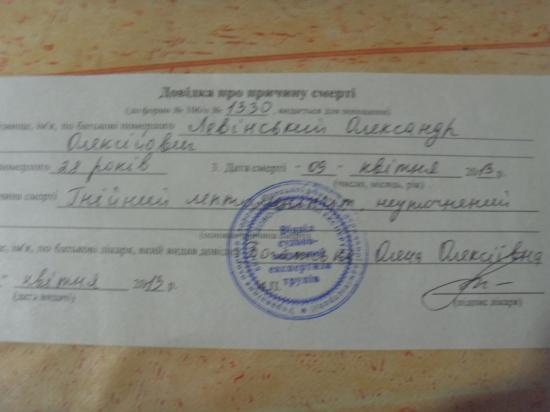 Довідка про причину смерті
(до форми № 106/о № 1330, видається для поховання)
ім'я, по батькові померлого Левінський Олександр
Олексійович
померлого 28 років 3. Дата смерті - 09 - квітня 2013 р.
(число, місяць, рік)
смерті Гнійний лептоменінгіт, неуточнений
ім'я, по батькові лікаря, який видав Олена Олексіївна
Відділ
судово-
медичної
експертизи
трупів
М.П.
- квітня 2013 р.
(дата видачі)
(підпис лікаря)